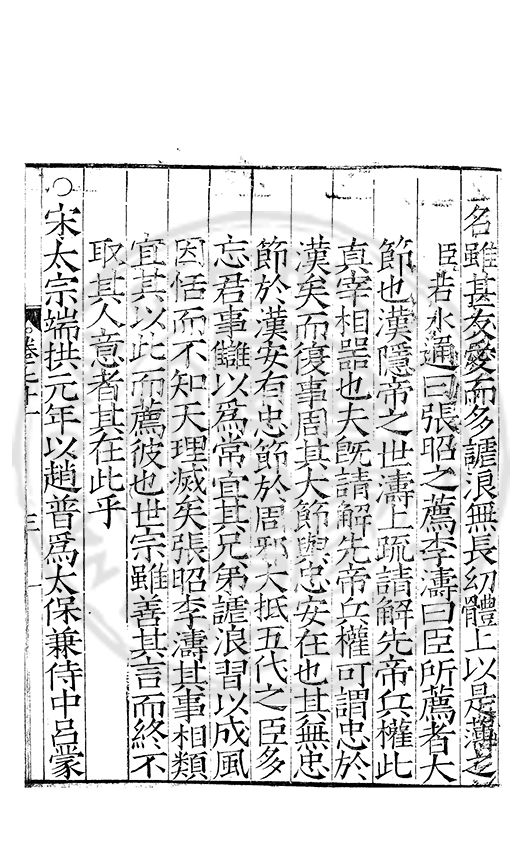 名雖甚友愛而多謔浪無長幼體上以是薄之
臣若水通曰張昭之薦李濤曰臣所薦者大
節也漢隱帝之世濤上疏請解先帝兵權此
真宰相器也夫旣請解先帝兵權可謂忠於
漢矣而復事周其大節與忠安在也其無忠
節於漢安有忠節於周邪大抵五代之臣多
忘君事讎以爲常宜其兄弟謔浪習以成風
因恬而不知天理滅矣張昭李濤其事相類
宜其以此而薦彼也世宗雖善其言而終不
取其人意者其在此乎
○宋太宗端拱元年以趙普爲太保兼侍中呂蒙
卷之十一
三